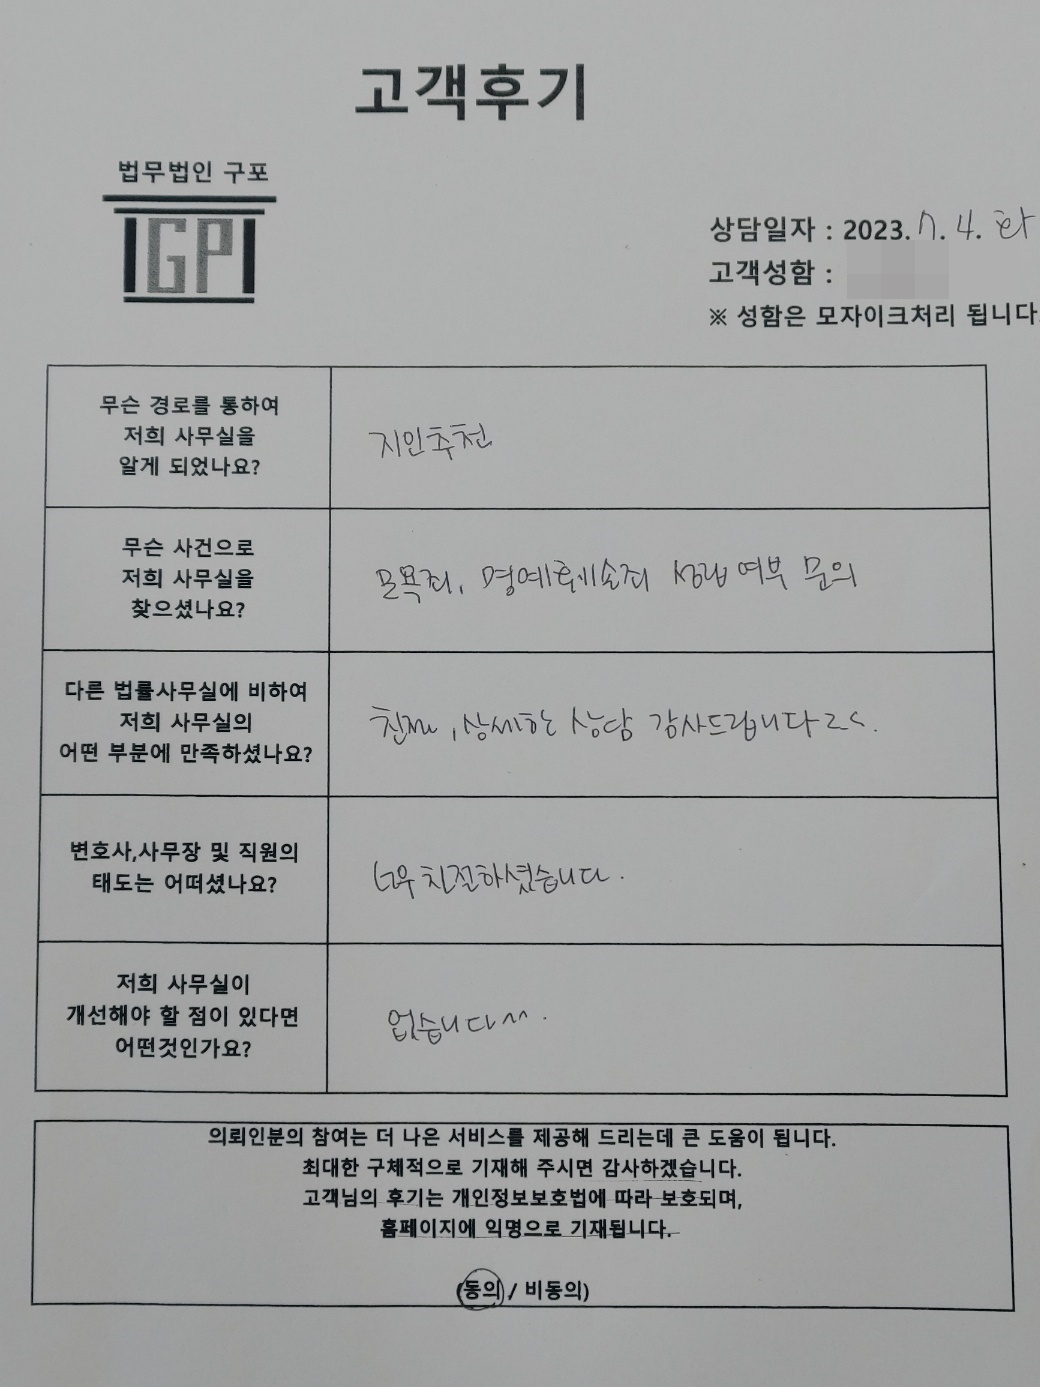 고객후기
법무법인 구포
IGPI
상담일자 : 2023. 7. 4. 화
고객성함 :
※ 성함은 모자이크처리 됩니다.
무슨 경로를 통하여
저희 사무실을
알게 되었나요?
지인추천
무슨 사건으로
저희 사무실을
찾으셨나요?
모욕죄, 명예훼손죄 성립 여부 문의
다른 법률사무실에 비하여
저희 사무실의
어떤 부분에 만족하셨나요?
친절, 상세한 상담 감사드립니다
변호사,사무장 및 직원의
태도는 어떠셨나요?
너무 친절하셨습니다.
저희 사무실이
개선해야 할 점이 있다면
어떤것인가요?
없습니다^^.
의뢰인분의 참여는 더 나은 서비스를 제공해 드리는데 큰 도움이 됩니다.
최대한 구체적으로 기재해 주시면 감사하겠습니다.
고객님의 후기는 개인정보보호법에 따라 보호되며,
홈페이지에 익명으로 기재됩니다.
(동의 / 비동의)